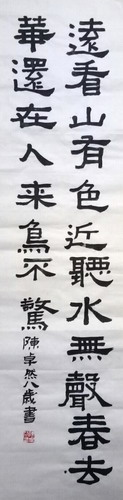 遠看山有色近聽水無聲春去
華還在人来鳥不驚
陳卓然八歲書